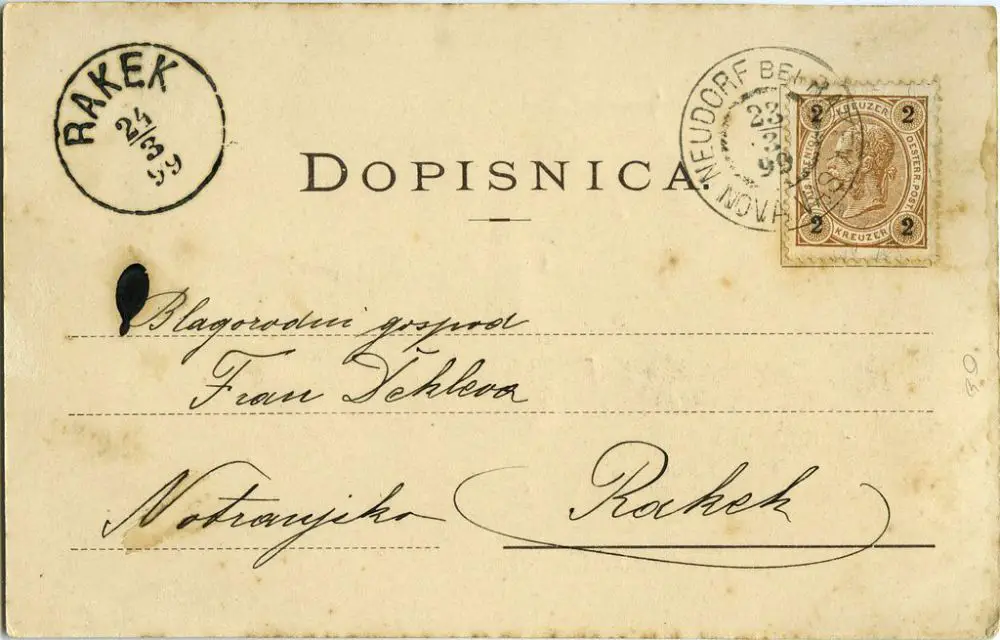 RAKEK
24/3
99
DOPISNICA.
NEUDORF BEI
NOVA
23/3
99
2 KREUZER 2
OESTERR. POST
2 KREUZER 2
Blagorodni gospod
Fran Dekleva
Notranjsko Rakek